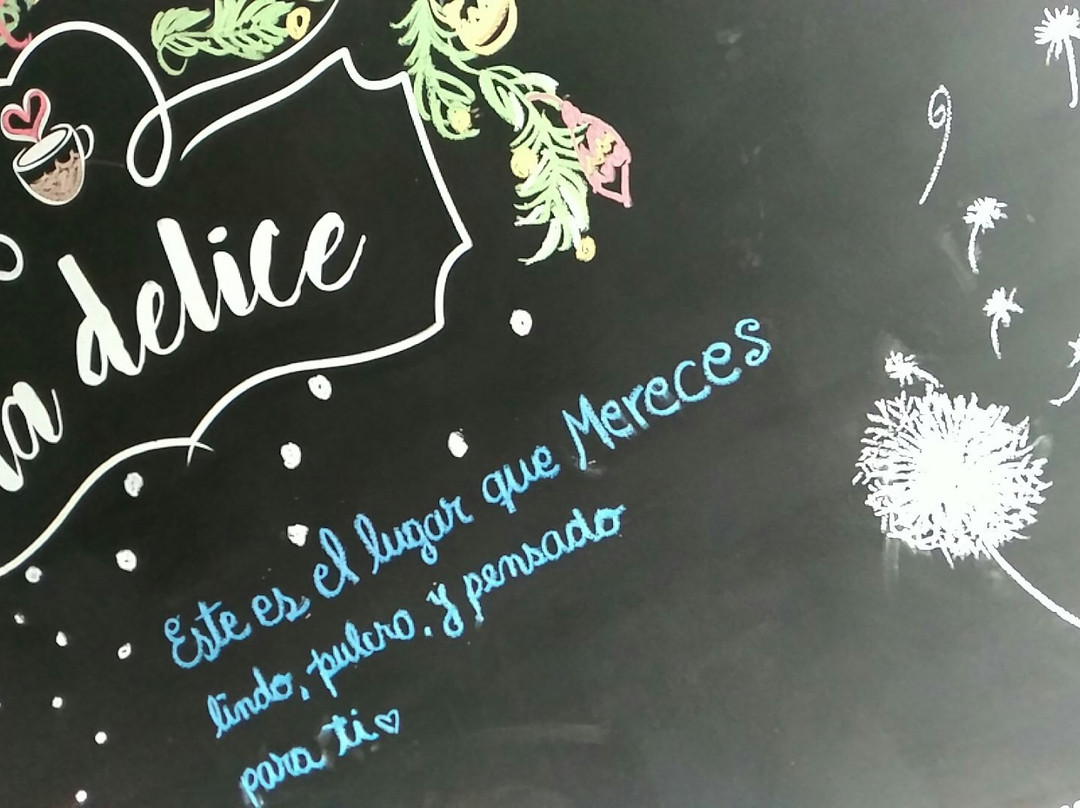 delice
Este es el lugar que Mereces
lindo, pulcro, y pensado
para ti